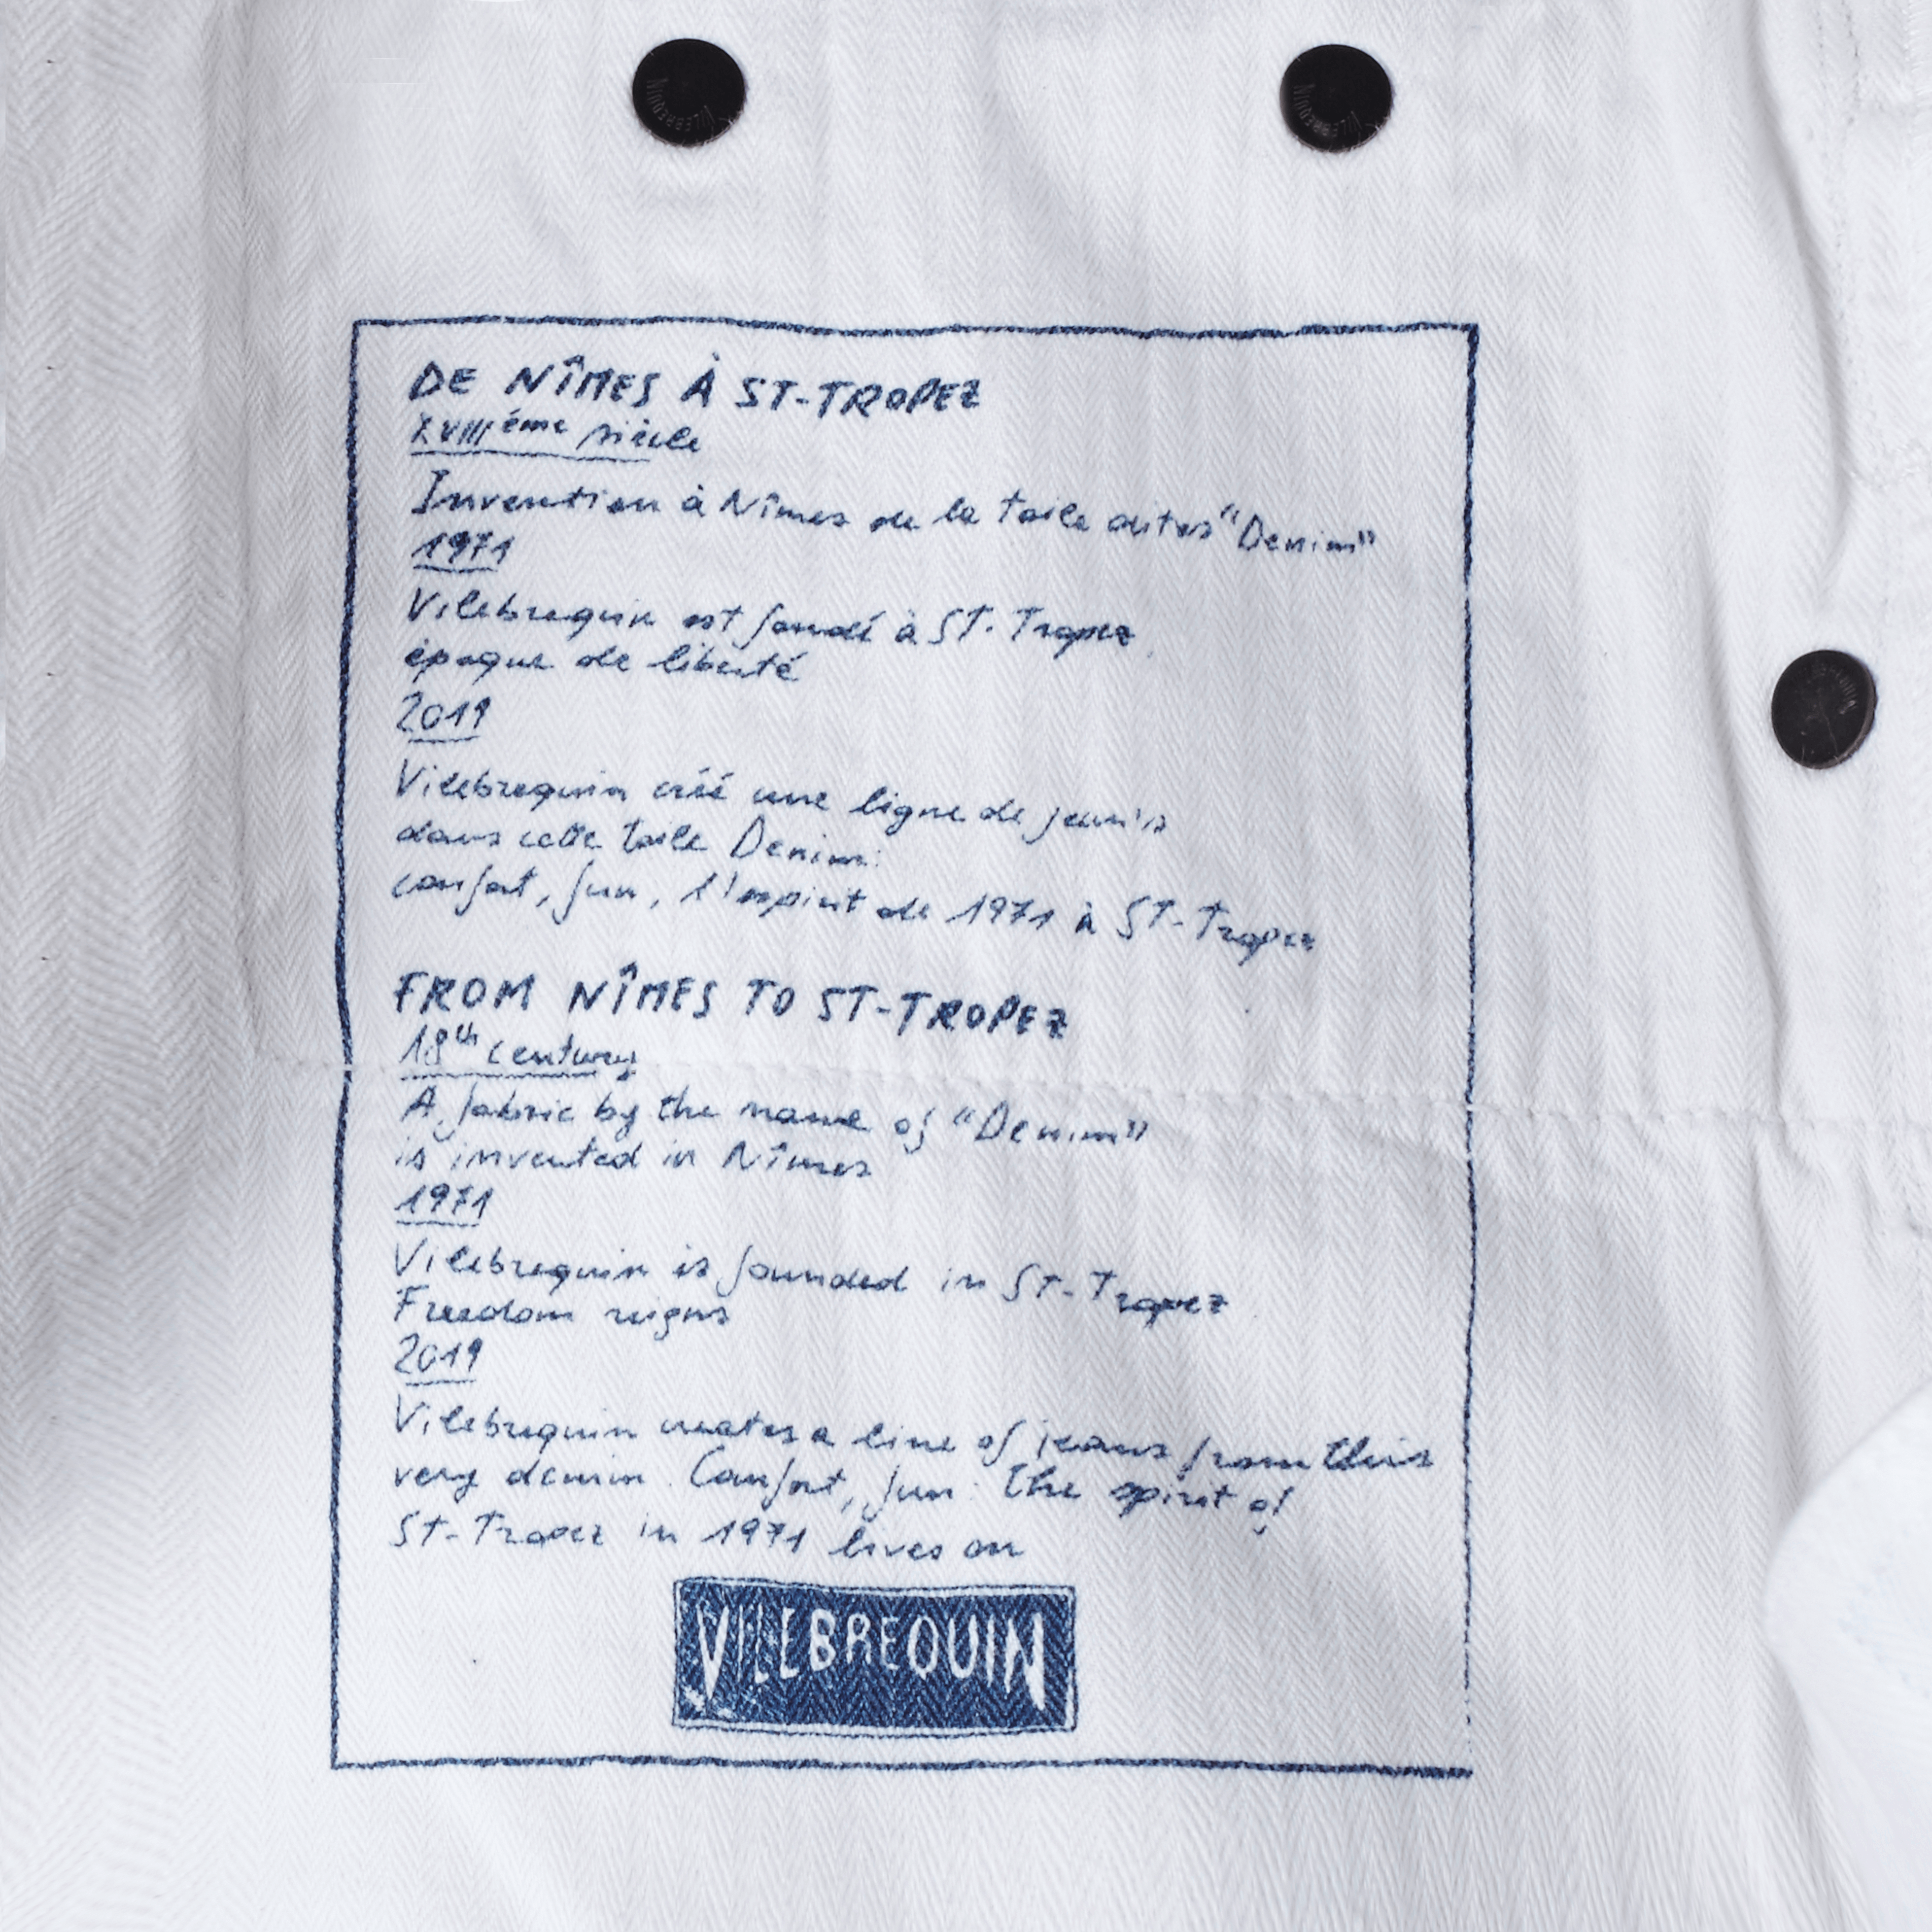 DE NÎMES À ST-TROPEZ
XVIIIéme siècle
Invention à Nîmes de la toile dites "Denim"
1971
Vilebrequin est fondé à ST-Tropez
époque de liberté
2019
Vilebrequin créé une ligne de jean's
dans cette toile Denim:
confort, fun, l'esprit de 1971 à ST-Tropez
FROM NÎMES TO ST-TROPEZ
18th century
A fabric by the name of "Denim"
is invented in Nîmes
1971
Vilebrequin is founded in ST-Tropez
Freedom reigns
2019
Vilebrequin creates a line of jeans from this
very denim. Confort, fun: the spirit of
St-Tropez in 1971 lives on
VILEBREQUIN
VILEBREQUIN
VILEBREQUIN